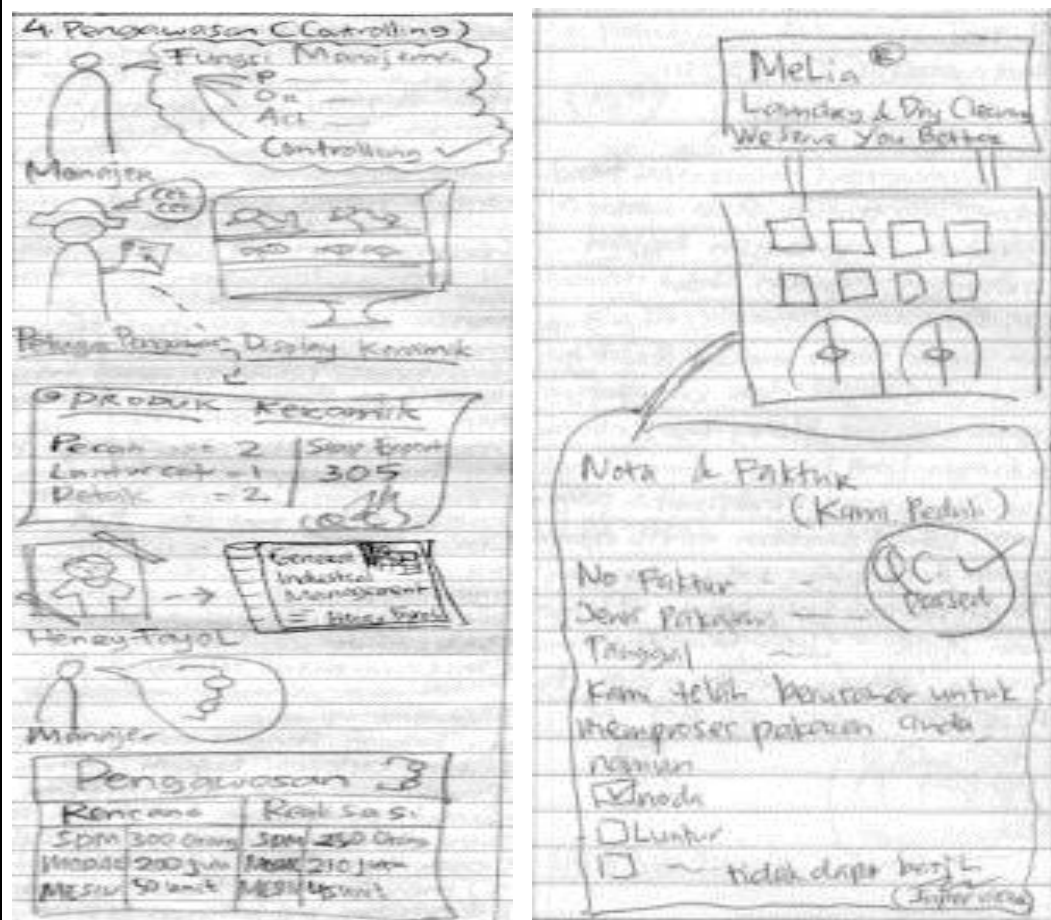 4. Pengawasan (Controlling)
Fungsi Manajemen
P
On
Act
Controlling ✓
Manajer
Petugas Pengawas
Display Keramik
PRODUK Keramik
Pecah = 2
Siap Export
Luntur cat = 1
305
= 2
General
Industrial
Management
Henry Fayol
Henry Fayol
Manajer
Pengawasan
Rencana
Realisasi
SDM 300 Orang
SDM 250 Orang
MODAL 200 juta
Modal 210 juta
MESIN 50 unit
MESIN 45 unit
MeLia ®
Laundry & Dry Cleaning
We Serve You Better
Nota & Faktur
(Kami Peduli)
QC. ✓
passed
No Faktur
Jenis Pakaian
Tanggal
Kami telah berusaha untuk
memproses pakaian anda
namun
☑ noda
☐ Luntur
☐ tidak dapt bersih